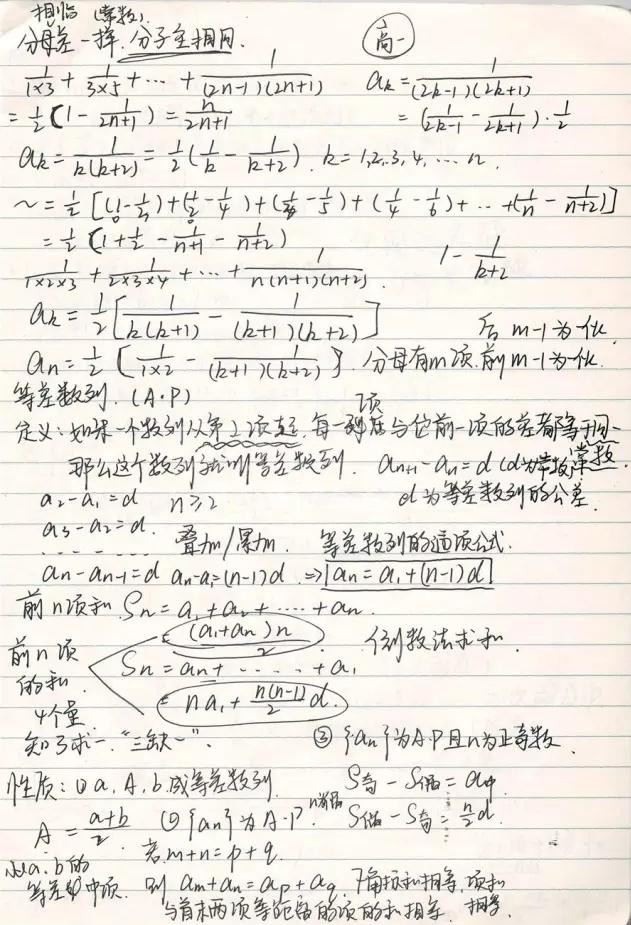 相临 (常数)
分母差一样.分子全相同. 高一
1/(1×3) + 1/(3×5) + … + 1/((2n-1)(2n+1)) a_k = 1/((2k-1)(2k+1))
= 1/2 (1 - 1/(2n+1)) = n/(2n+1) = (1/(2k-1) - 1/(2k+1))·1/2
a_k = 1/(k(k+2)) = 1/2 (1/k - 1/(k+2)). k = 1,2,3,4,… n.
~ = 1/2 [(1 - 1/3) + (1/2 - 1/4) + (1/3 - 1/5) + (1/4 - 1/6) + … + (1/n - 1/(n+2))]
= 1/2 (1 + 1/2 - 1/(n+1) - 1/(n+2))
1/(1×2×3) + 1/(2×3×4) + … + 1/(n(n+1)(n+2)). 1 - 1/(k+2)
a_k = 1/2 [1/(k(k+1)) - 1/((k+1)(k+2))] 后 m-1 为一伙
a_n = 1/2 [1/(1×2) - 1/((k+1)(k+2))]. 分母有m项.前m-1为一伙.
等差数列. (A·P)
定义:如果一个数列从第2项起,每一项与它前一项的差都等于同一
那么这个数列就叫等差数列. a_{n+1} - a_n = d (d为常数) 常数.
a₂ - a₁ = d n ≥ 2 d为等差数列的公差.
a₃ - a₂ = d.
…… 叠加/累加. 等差数列的通项公式.
a_n - a_{n-1} = d a_n - a₁ = (n-1)d ⇒ a_n = a₁ + (n-1)d
前n项和 S_n = a₁ + a₂ + …… + a_n.
(a₁+a_n)n/2 倒数法求和.
前n项的和. S_n = a_n + …… + a₁
= na₁ + n(n-1)/2 d.
4个量
知3求一."三缺一". ③ {a_n}为A·P且n为正奇数.
性质:① a, A, b.成等差数列. S奇 - S偶 = a中.
A = (a+b)/2. ② {a_n}为A·P. n为偶 S偶 - S奇 = n/2 d.
若m+n=p+q.
a.b的
等差中项. 则 a_m + a_n = a_p + a_q. 下角标和相等,项和
与首末两项等距离的项的和相等. 相等.